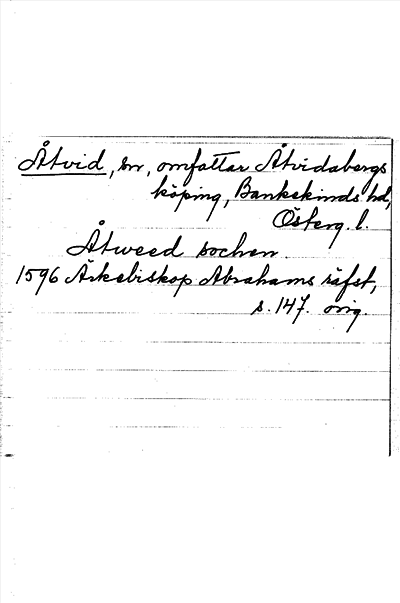 Åtvid, sn, omfattar Åtvidabergs
köping, Bankekinds hd,
Österg. l.
Åtweed sochen.
1596 Ärkebiskop Abrahams räfst,
s. 147. orig.